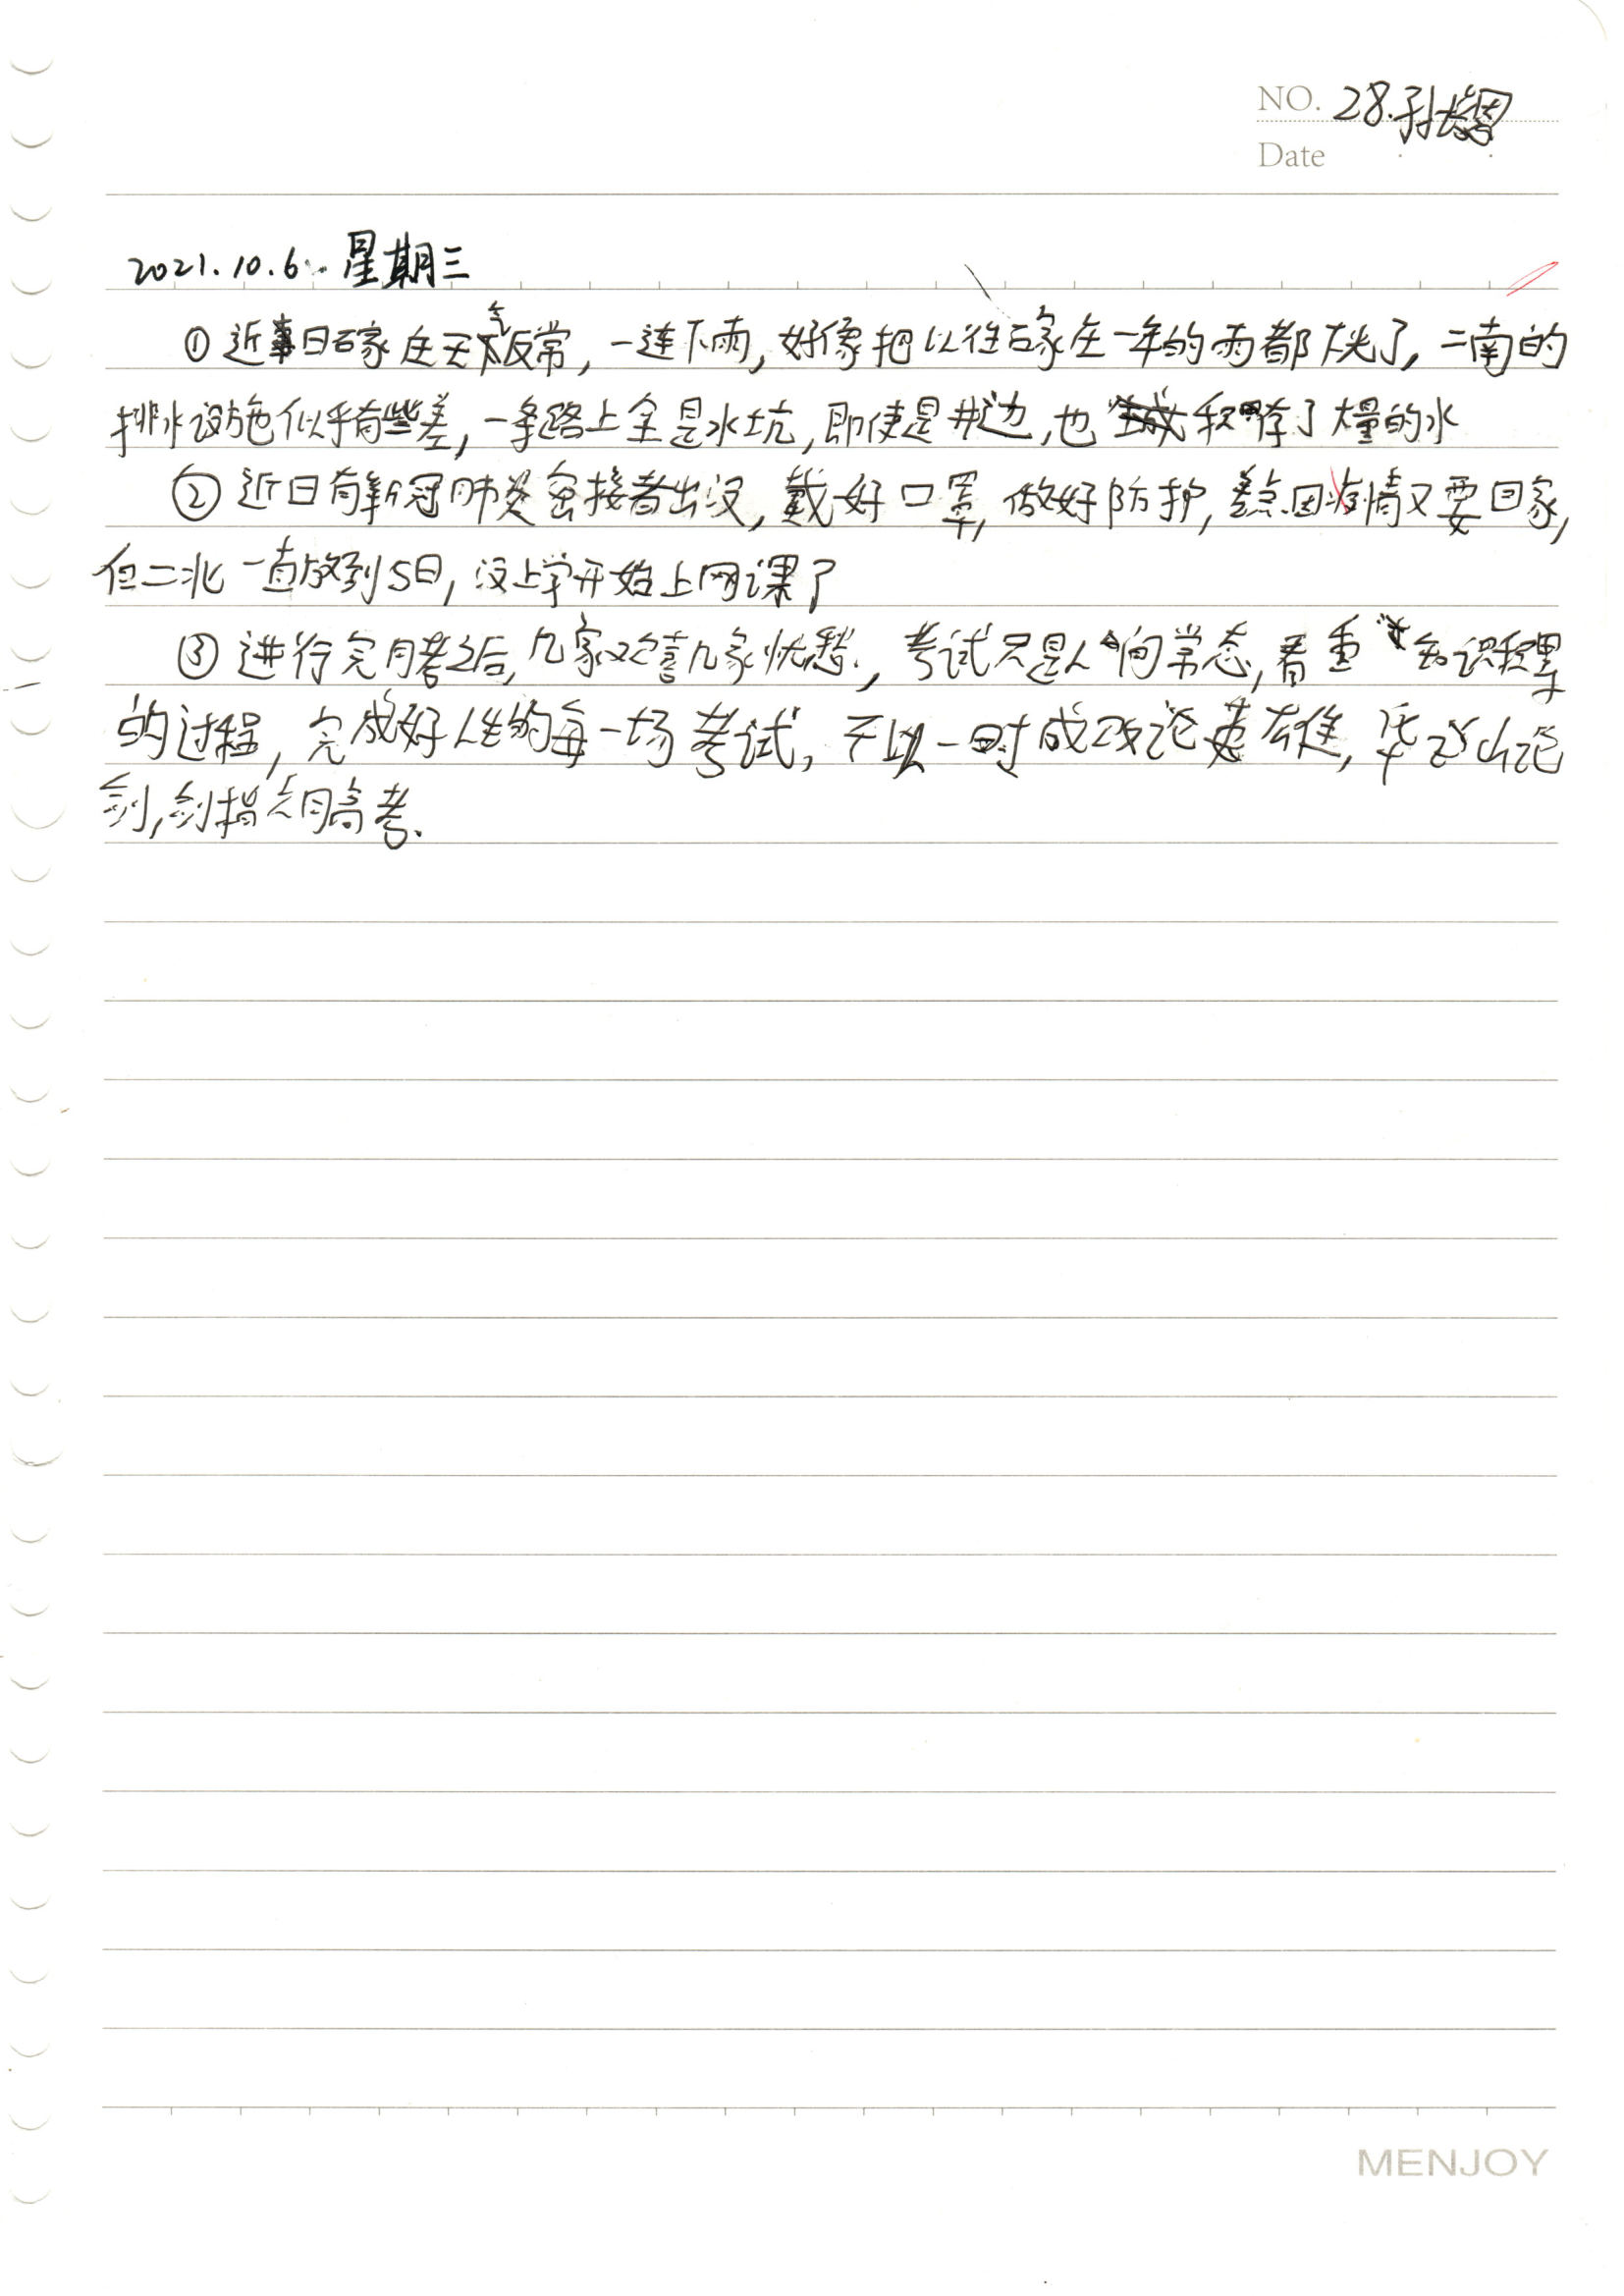 NO. 28.孙
Date
2021.10.6 星期三
①近日石家庄天气反常,一连下雨,好像把以往石家庄一年的雨都下光了,二南的
排水设施似乎有些差,一条路上全是水坑,即使是井边,也积存了大量的水
②近日有新冠肺炎密接者出没,戴好口罩,做好防护,差点因疫情又要回家,
但二北一直放到5日,没上学开始上网课了
③进行完月考之后,几家欢喜几家忧愁.,考试只是人间常态,看重知识积累
的过程,完成好人生的每一场考试,不以一时成败论英雄,华山论
剑,剑指六月高考.
MENJOY